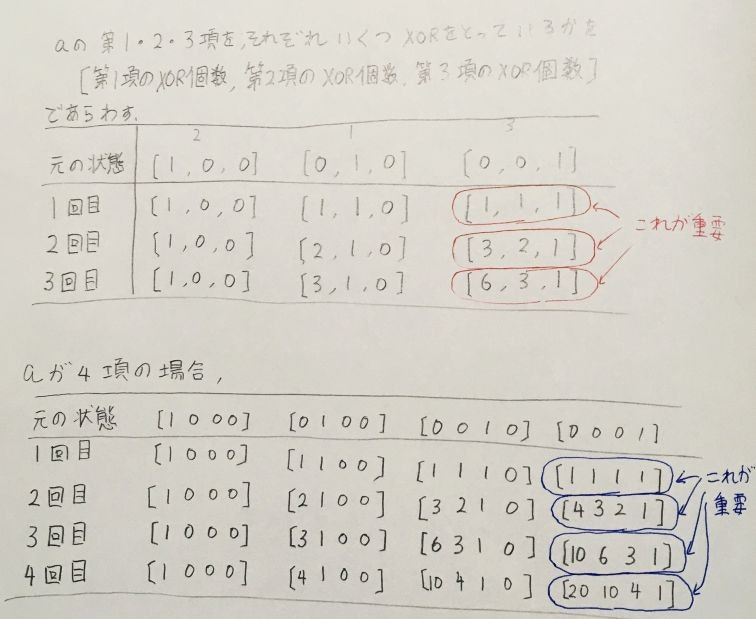 aの第1・2・3項を、それぞれいくつXORをとっているかを
[第1項のXOR個数, 第2項のXOR個数, 第3項のXOR個数]
であらわす.
2 1 3
元の状態 [1, 0, 0] [0, 1, 0] [0, 0, 1]
1回目 [1, 0, 0] [1, 1, 0] [1, 1, 1]
2回目 [1, 0, 0] [2, 1, 0] [3, 2, 1]
3回目 [1, 0, 0] [3, 1, 0] [6, 3, 1]
これが重要
aが4項の場合,
元の状態 [1 0 0 0] [0 1 0 0] [0 0 1 0] [0 0 0 1]
1回目 [1 0 0 0] [1 1 0 0] [1 1 1 0] [1 1 1 1]
2回目 [1 0 0 0] [2 1 0 0] [3 2 1 0] [4 3 2 1]
3回目 [1 0 0 0] [3 1 0 0] [6 3 1 0] [10 6 3 1]
4回目 [1 0 0 0] [4 1 0 0] [10 4 1 0] [20 10 4 1]
これが
重要